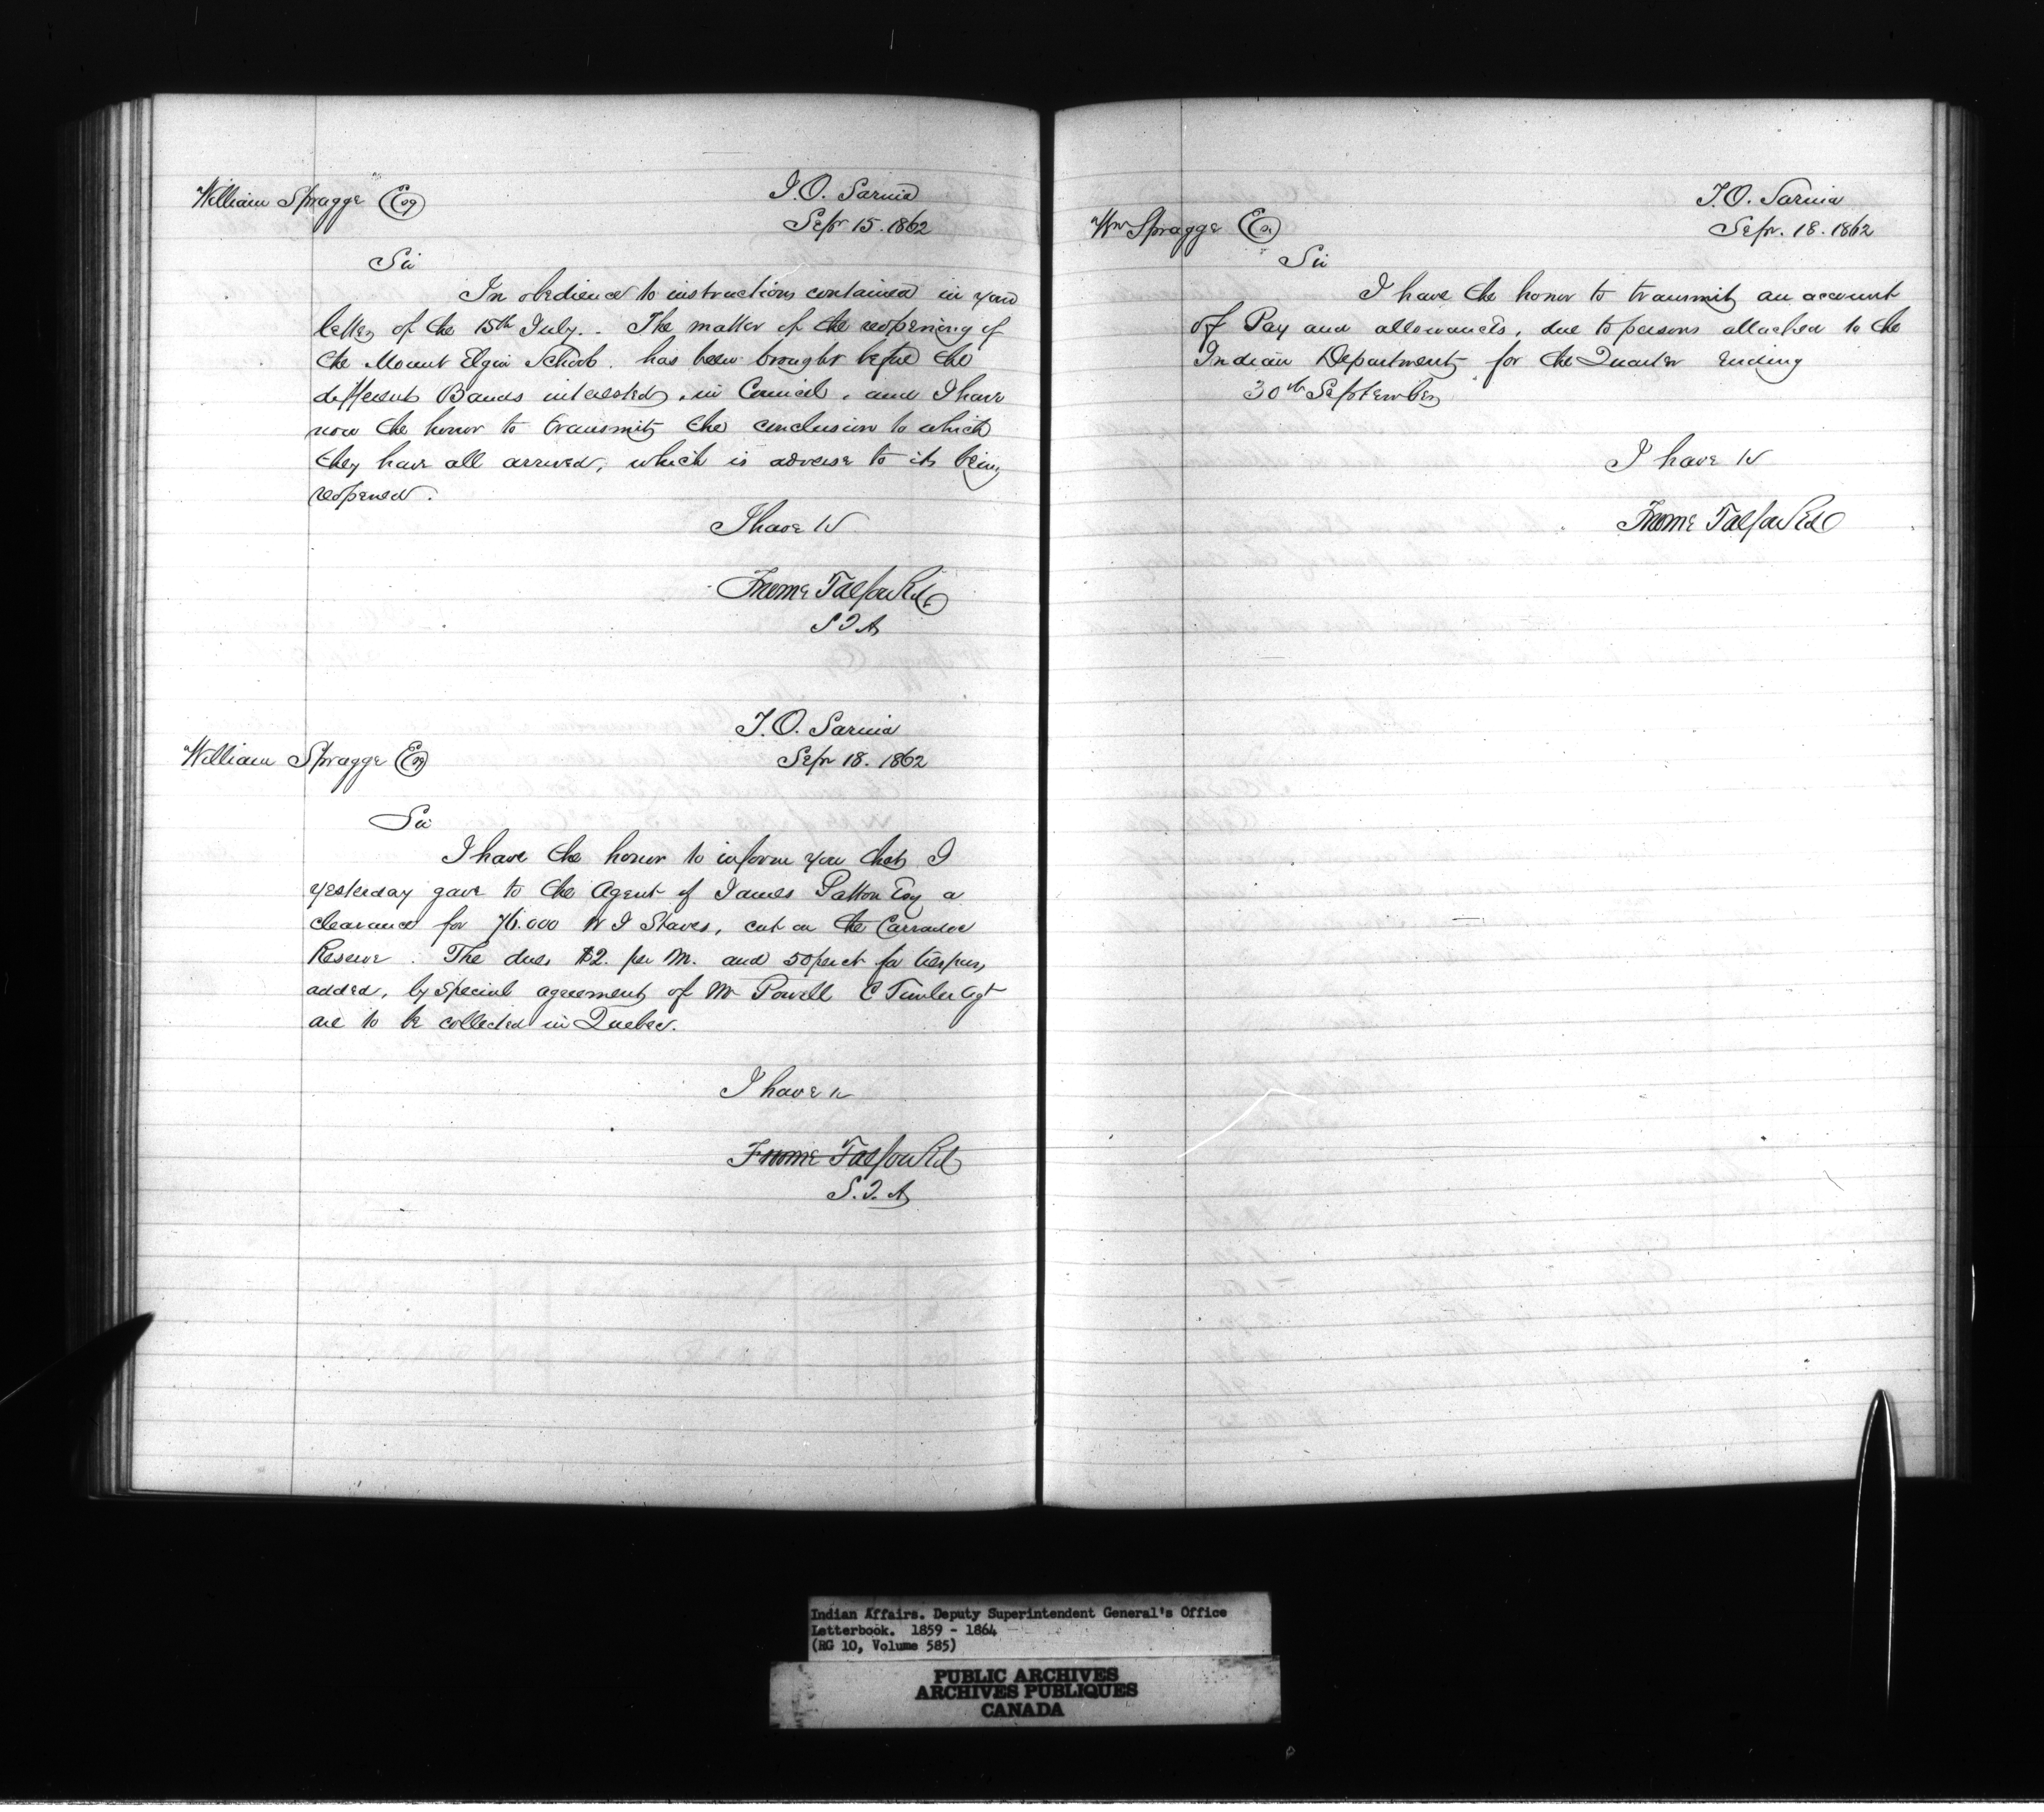 William Spragge Esq
I.O. Sarnia
Sepr 15. 1862
Sir
In obedience to instructions contained in your
letter of the 15th July.. The matter of the reopening of
the Mount Elgin School. has been brought before the
different Bands interested, in Council, and I have
now the honor to transmit the conclusion to which
they have all arrived, which is adverse to its being
reopened.
I have &c
Froome Talfourd
S I A
I.O. Sarnia
William Spragge Esq
Sepr 18. 1862
Sir
I have the honor to inform you that I
yesterday gave to the Agent of James Patton Esq a
clearance for 76.000 W I Staves, cut on the Carradoc
Reserve. The dues $2. per M. and 50 per ct for trespass
added, by special agreement of Mr Powell C Timber Agt
are to be collected in Quebec.
I have &c
Froome Talfourd
S. I. A
I.O. Sarnia
Sepr. 18. 1862
Wm Spragge Esq
Sir
I have the honor to transmit an account
of Pay and allowances, due to persons attached to the
Indian Department for the Quarter Ending
30th September
I have &c
Froome Talfourd
Indian Affairs. Deputy Superintendent General's Office
Letterbook. 1859 - 1864
(RG 10, Volume 585)
PUBLIC ARCHIVES
ARCHIVES PUBLIQUES
CANADA